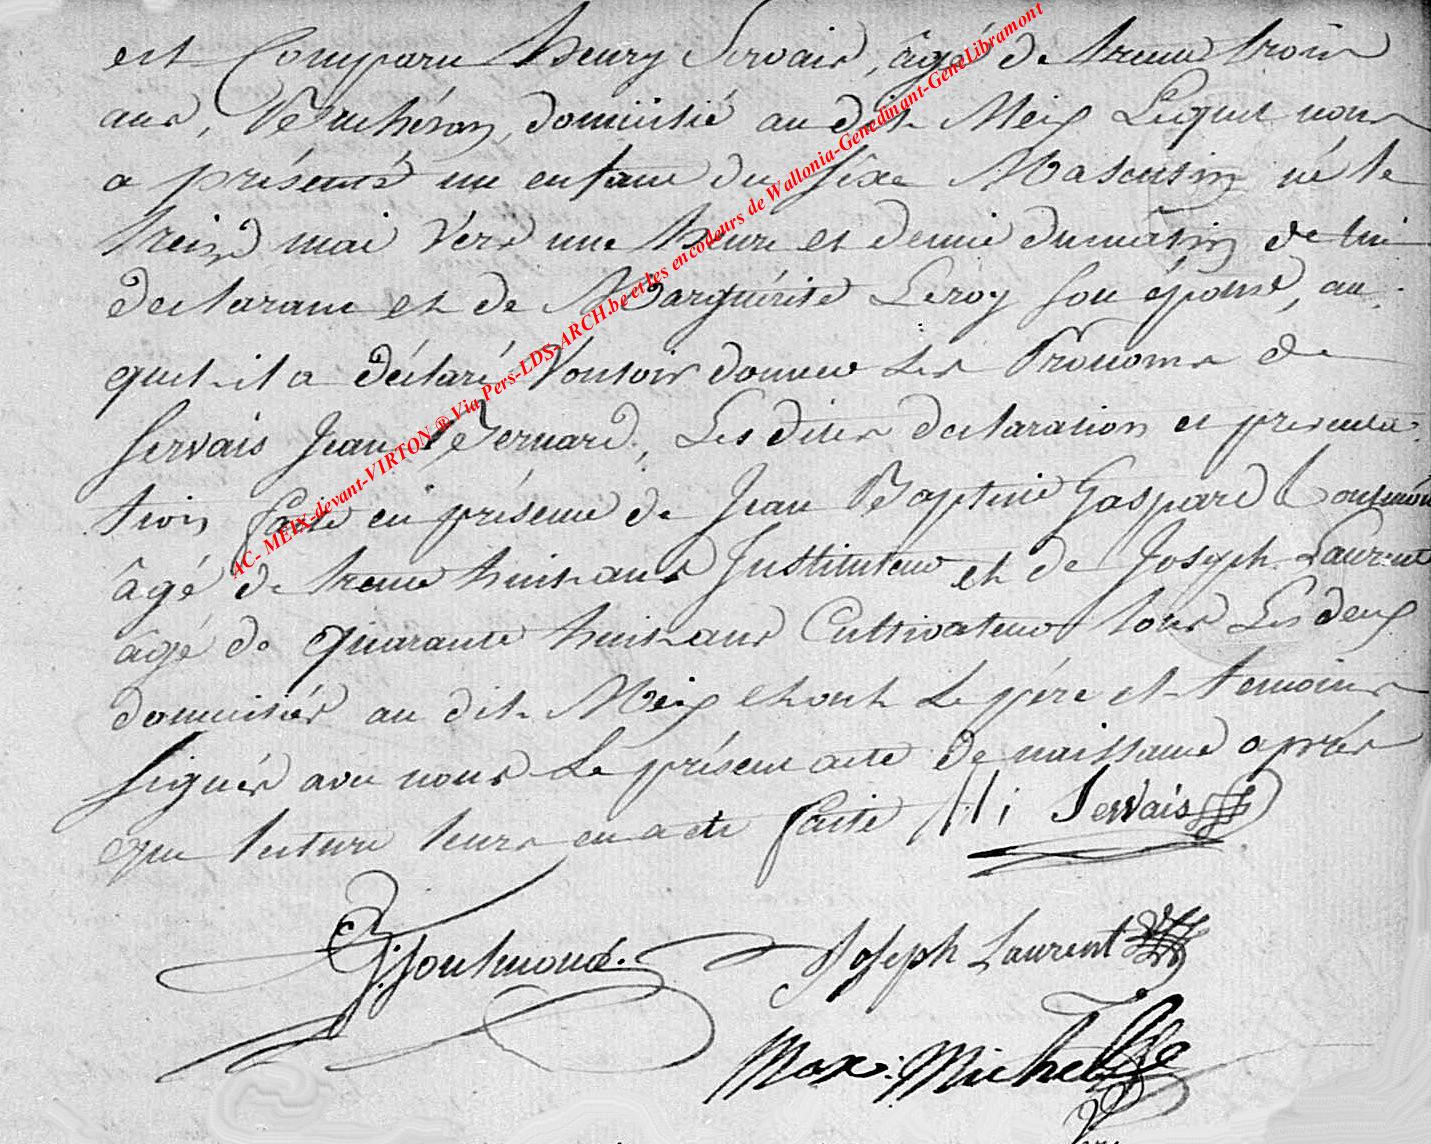 est Comparu henry Servais, âgé de trente trois
ans, domicilié au dit Meix Lequel nous
a présenté un enfant du sixe Masculin né le
mai vers une heure et demie du matin de lui
declarant et de Marguérite Leroy son épouse, au
quel il a déclaré Vouloir donner Les Prenoms de
Servais Jean Bernard, Les dites declaration et presenta-
tion faite en présence de Jean Baptiste Gaspard Goulmon
âgé de trente huit ans Instituteur et de Joseph Laurent
âgé de quarante huit ans Cultivateur tous Les deux
domiciliés au dit Meix et ont Le père et temoins
signés avec nous Le présent acte de naissance après
que lecture leurs en a été faite Hi Servais
Joseph Laurent
Max: Michel
AC- MEIX-devant-VIRTON ® Via Pers-LDS-ARCH.be et les encodeurs de Wallonia-Genedinant-GeneLibramont